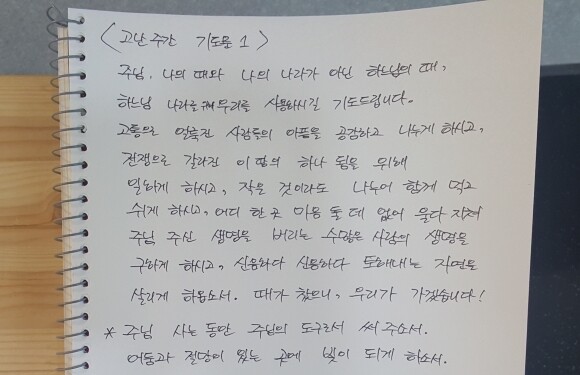 < 고난주간 기도문 1 >
주님, 나의 때와 나의 나라가 아닌 하느님의 때,
하느님 나라를 위해 우리를 사용하시길 기도드립니다.
고통으로 얼룩진 사람들의 아픔을 공감하고 나누게 하시고,
전쟁으로 갈라진 이 땅의 하나 됨을 위해
일하게 하시고, 작은 것이라도 나누어 함께 먹고
쉬게 하시고, 어디 한 곳 마음 둘 데 없어 울다 지쳐
주님 주신 생명을 버리는 수많은 사람의 생명을
구하게 하시고, 신음하다 신음하다 토해내는 자연을
살리게 하옵소서. 때가 찼으니, 우리가 가겠습니다!
* 주님 사는 동안 주님의 도구로서 써 주소서.
어둠과 절망이 있는 곳에 빛이 되게 하소서.